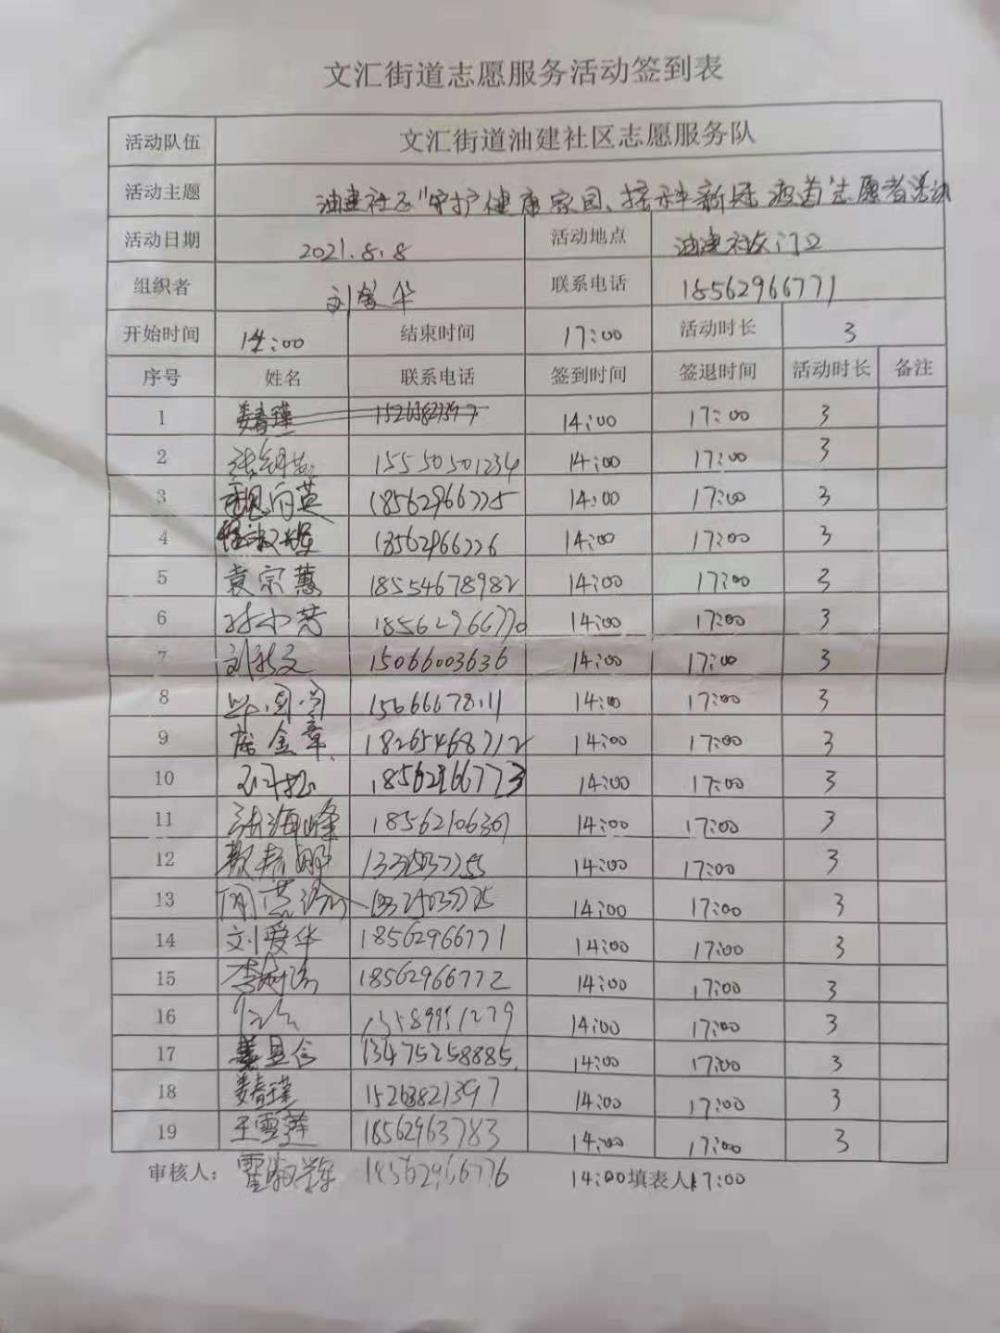 文汇街道志愿服务活动签到表
活动队伍 文汇街道油建社区志愿服务队
活动主题 油建社区"守护健康家园、接种新冠疫苗"志愿者活动
活动日期 2021.8.8 活动地点 油建社区门口
组织者 刘爱华 联系电话 18562966771
开始时间 14:00 结束时间 17:00 活动时长 3
序号 姓名 联系电话 签到时间 签退时间 活动时长 备注
1 娄春瑾 15263821397 14:00 17:00 3
2 15550501234 14:00 17:00 3
3 向英 18562966775 14:00 17:00 3
4 18562966776 14:00 17:00 3
5 袁宗慧 18554678982 14:00 17:00 3
6 孙小芳 18562966770 14:00 17:00 3
7 15066003636 14:00 17:00 3
8 14:00 17:00 3
9 席金章 18265468712 14:00 17:00 3
10 18562966773 14:00 17:00 3
11 张海峰 18562106361 14:00 17:00 3
12 14:00 17:00 3
13 14:00 17:00 3
14 刘爱华 18562966771 14:00 17:00 3
15 18562966772 14:00 17:00 3
16 14:00 17:00 3
17 13475258885 14:00 17:00 3
18 娄春瑾 15263821397 14:00 17:00 3
19 王雪萍 18562963783 14:00 17:00 3
审核人: 18562966776 14:00填表人17:00